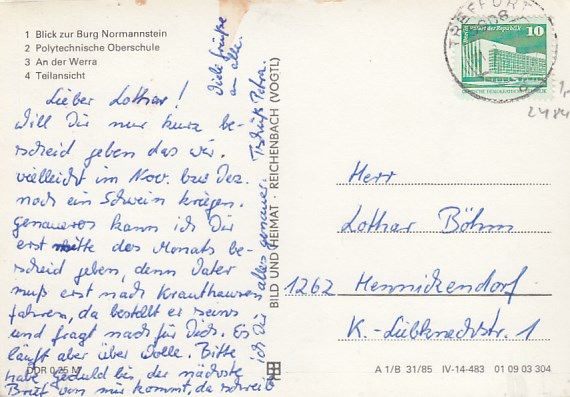 1 Blick zur Burg Normannstein
2 Polytechnische Oberschule
3 An der Werra
4 Teilansicht
Lieber Lothar!
Will Dir nur kurz be-
scheid geben das wir
vielleicht im Nov. bzw Dez.
noch ein Schwein kriegen.
genaueres kann ich Dir
erst mitte des Monats be-
scheid geben, denn Vater
muß erst nach Krauthausen
fahren, da bestellt er seins
und fragt nach für Dich. Es
läuft aber über Wolle. Bitte
habe geduld bis der nächste
Brief von mir kommt, da schreib
ich Dir alles genauer. Tschüß Petra.
Viele Grüße
an alle.
DDR 0,25 M
BILD UND HEIMAT · REICHENBACH (VOGTL)
TREFFURT
Palast der Republik
10
Herr
Lothar Böhm
1262 Hennickendorf
K.-Liebknechtstr. 1
A 1/B 31/85 IV-14-483 01 09 03 304